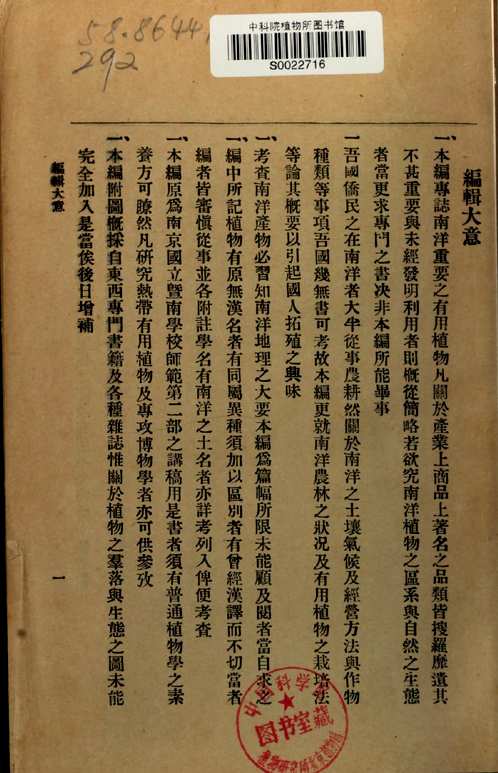 58.8644
292
中科院植物所图书馆
S0022716
編輯大意
一、本編專誌南洋重要之有用植物凡關於產業上商品上著名之品類皆搜羅靡遺其
不甚重要與未經發明利用者則概從簡略若欲究南洋植物之區系與自然之生態
者當更求專門之書決非本編所能畢事
一吾國僑民之在南洋者大半從事農耕然關於南洋之土壤氣候及經營方法與作物
種類等事項吾國幾無書可考故本編更就南洋農林之狀況及有用植物之栽培法
等論其概要以引起國人拓殖之興味
一、考查南洋產物必習知南洋地理之大要本編爲篇幅所限未能顧及閱者當自求之
一、編中所記植物有原無漢名者有同屬異種須加以區別者有曾經漢譯而不切當者
編者皆審愼從事並各附註學名有南洋之土名者亦詳考列入俾便考查
一、本編原爲南京國立暨南學校師範第二部之講稿用是書者須有普通植物學之素
養方可瞭然凡研究熱帶有用植物及專攻博物學者亦可供參攷
一、本編附圖概採自東西專門書籍及各種雜誌惟關於植物之羣落與生態之圖未能
完全加入是當俟後日增補
編輯大意
一
中国科学院
图书室藏